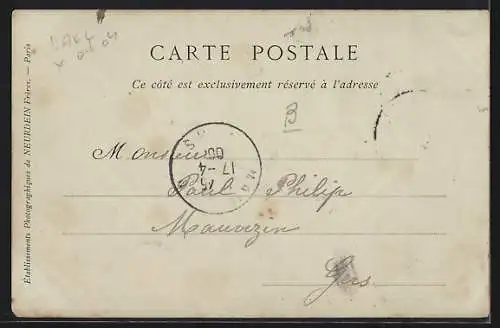 CARTE POSTALE
Ce côté est exclusivement réservé à l'adresse
B
Monsieur
Paul Philip
Mauvezin
Gers
17-4
Établissements Photographiques de NEURDEIN Frères. — Paris